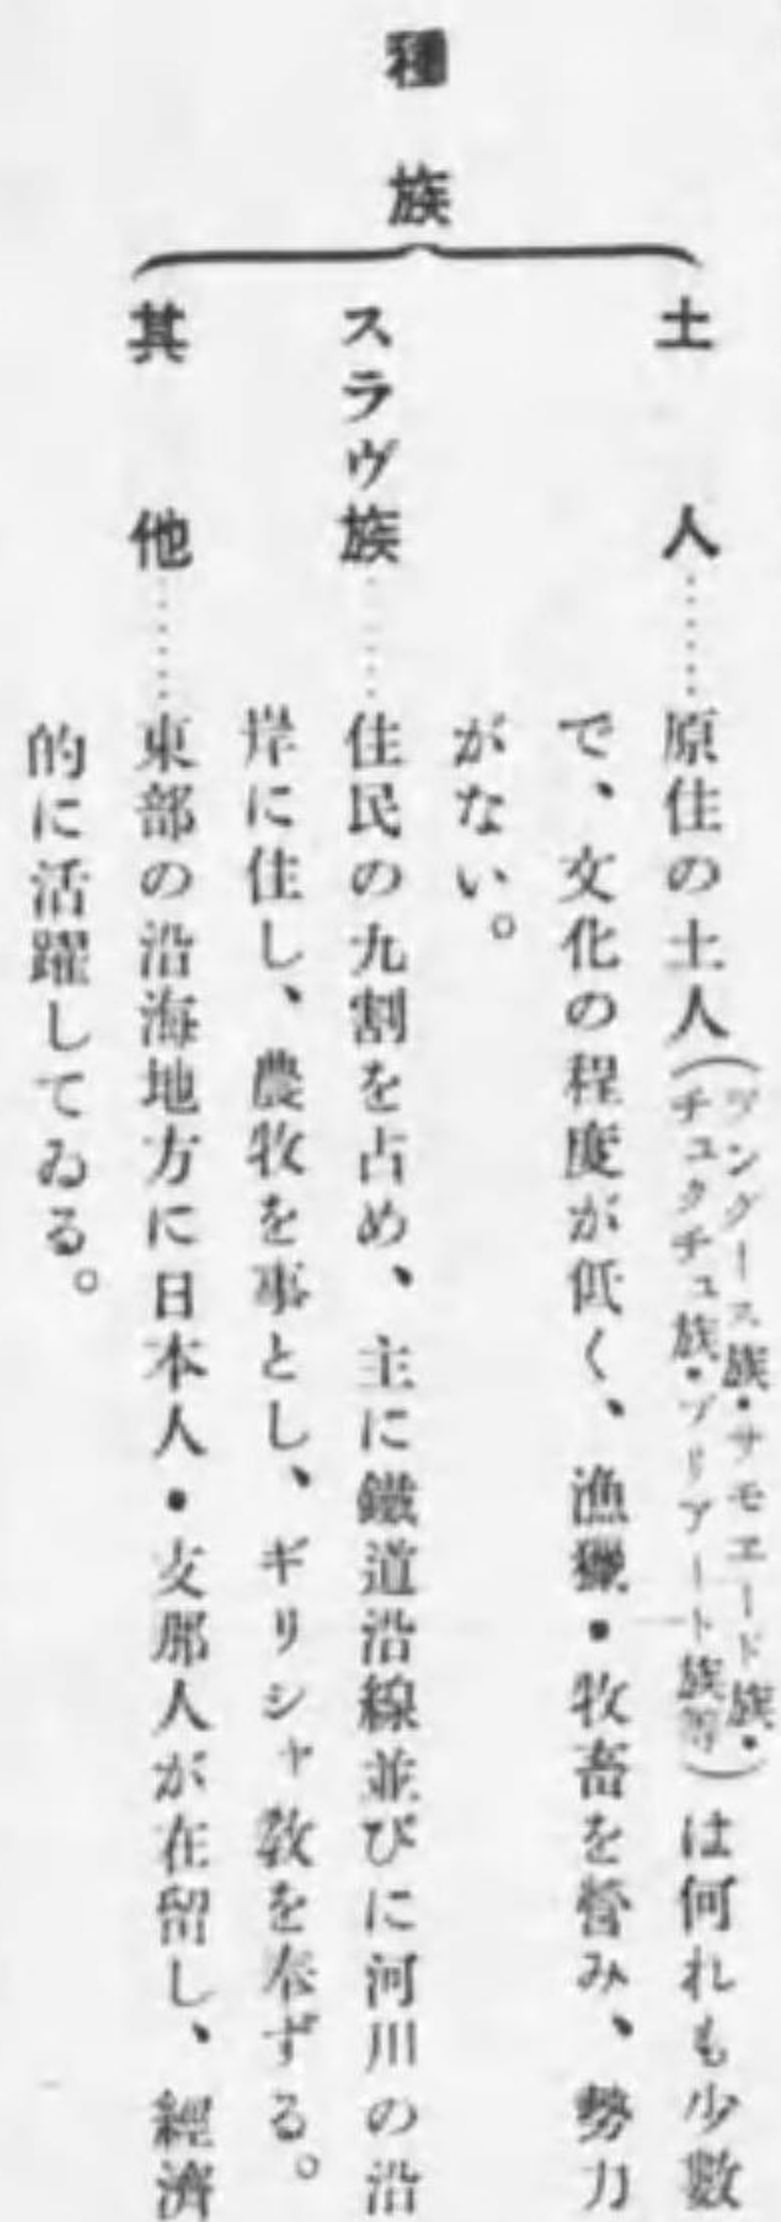 種族
土人……原住の土人(ツングース族・サモエード族・チュクチュ族・ブリアート族等)は何れも少數
で、文化の程度が低く、漁獵・牧畜を營み、勢力
がない。
スラヴ族……住民の九割を占め、主に鐵道沿線並びに河川の沿
岸に住し、農牧を事とし、ギリシャ敎を奉ずる。
其他……東部の沿海地方に日本人・支那人が在留し、經濟
的に活躍してゐる。